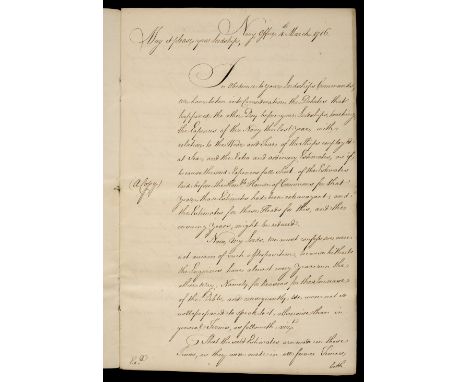 Navy Office 4th March 1716.
May it please your Lordships,
In Obedience to your Lordships Commands,
we have taken into Consideration the Debates that
happened the other Day before your Lordships, touching
the Expence of the Navy this last year, with
relation to the Wear and Tare of the Ships employ'd
at Sea, and the Extra and ordinary Estimates, as if
the Expences fell short of the Estimates
laid before the Honble. House of Commons for that
year, those Estimates had been extravagant, and
the Estimates for those Heads for this, and the
ensuing years, might be reduced.
(A Copy)
Now, my Lords, we must confess we were
not aware of such a Proposition, because hitherto
the Enquiries have almost every year run the
other way, Namely, for Reasons for the Increase
of the Debt, and consequently, we were not so
well prepared to speak to it, otherwise than in
general Terms, as followeth, vizt.
That the said Estimates are made in those
Times, as they were made in all former Times,
both